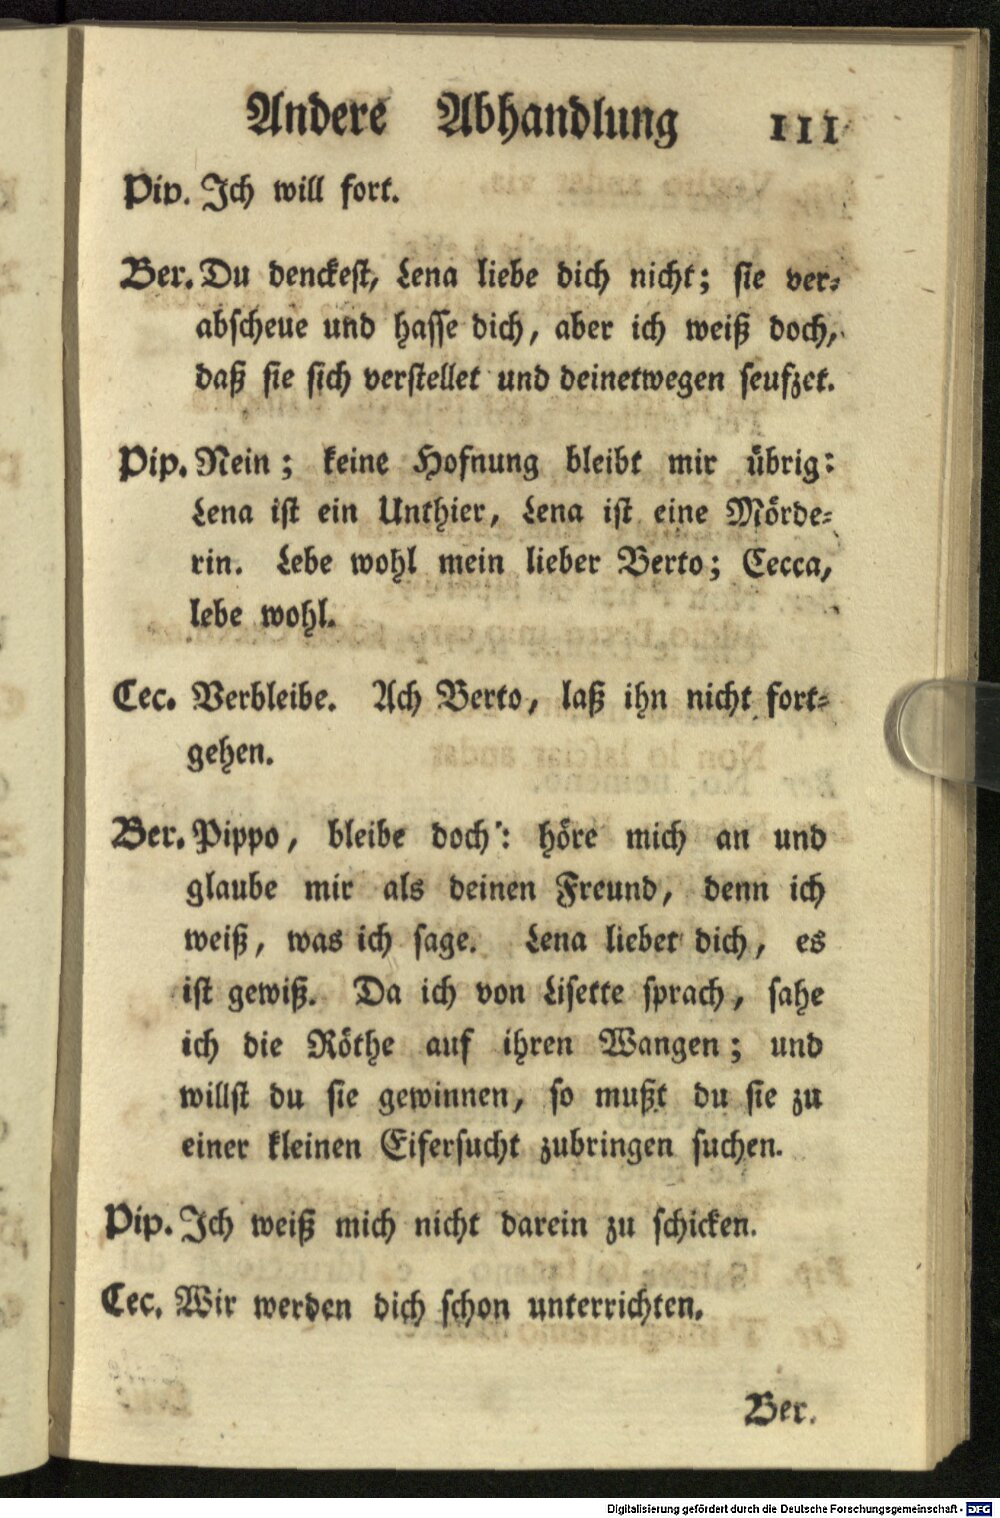 Andere Abhandlung 111
Pip. Ich will fort.
Ber. Du denckest, Lena liebe dich nicht; sie ver-
abscheue und hasse dich, aber ich weiß doch,
daß sie sich verstellet und deinetwegen seufzet.
Pip. Nein; keine Hofnung bleibt mir übrig:
Lena ist ein Unthier, Lena ist eine Mörde-
rin. Lebe wohl mein lieber Berto; Cecca,
lebe wohl.
Cec. Verbleibe. Ach Berto, laß ihn nicht fort-
gehen.
Ber. Pippo, bleibe doch: höre mich an und
glaube mir als deinen Freund, denn ich
weiß, was ich sage. Lena liebet dich, es
ist gewiß. Da ich von Lisette sprach, sahe
ich die Röthe auf ihren Wangen; und
willst du sie gewinnen, so mußt du sie zu
einer kleinen Eifersucht zubringen suchen.
Pip. Ich weiß mich nicht darein zu schicken.
Cec. Wir werden dich schon unterrichten.
Ber.
Digitalisierung gefördert durch die Deutsche Forschungsgemeinschaft - DFG